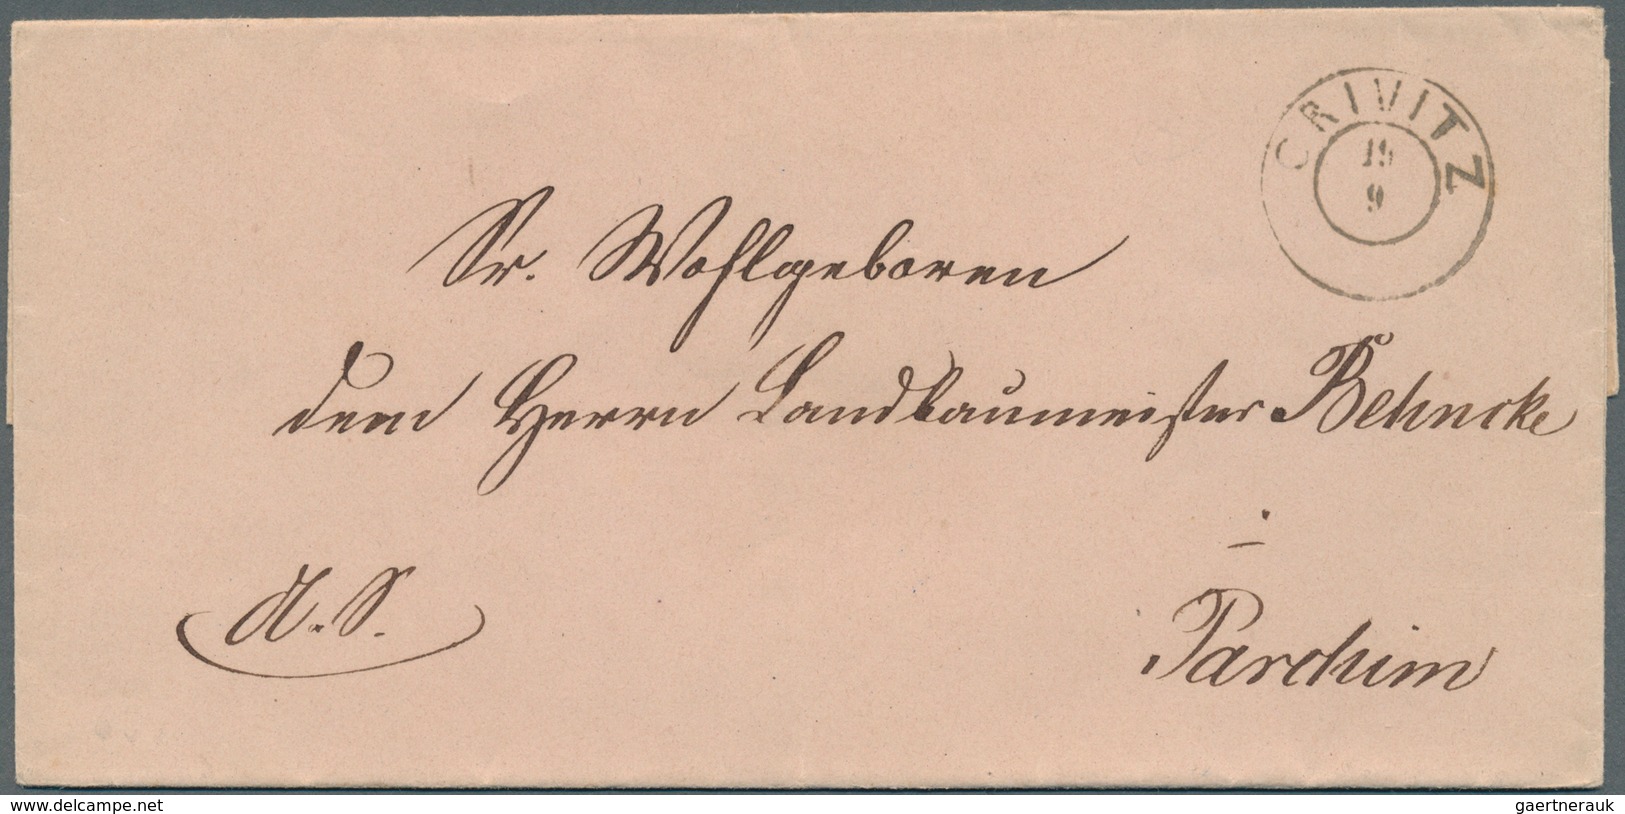 CRIVITZ
19
9
Sr. Wohlgeboren
dem Herrn Landbaumeister Behncke
Parchim
www.delcampe.net
gaertnerauk